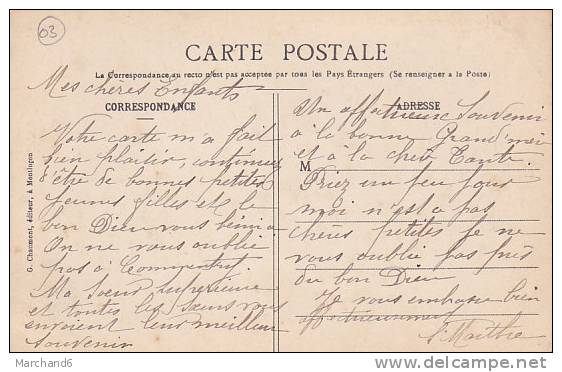 03
CARTE POSTALE
La Correspondance au recto n'est pas acceptée par tous les Pays Étrangers (Se renseigner à la Poste)
CORRESPONDANCE
ADRESSE
M
G. Chaumont, éditeur, à Montluçon
Mes chères Enfants
Votre carte m'a fait
bien plaisir, continuez
d'être de bonnes petites
jeunes filles et le
bon Dieu vous bénira
On ne vous oublie
pas à
Ma Soeur supérieure
et toutes les Soeurs vous
envoient leur meilleur
souvenir
Un affectueux Souvenir
à la bonne Grand'mère
et à la chère Tante.
Priez un peu pour
moi n'est-ce pas
chères petites je ne
vous oublie pas près
du bon Dieu
Je vous embrasse bien
affectueusement
Sr Marthe
Marchand6
www.delcampe.net